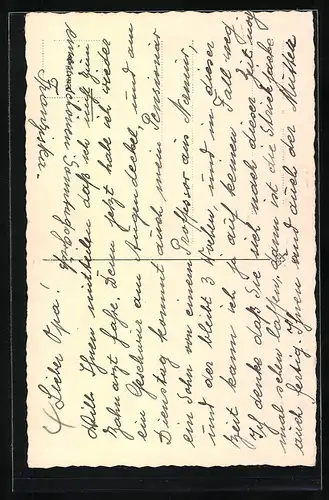 Lieber Opa!
Will Ihnen mitteilen daß ich nicht zum
Zahnarzt gehe. Denn jetzt habe ich wieder
ein Geschwür am Augendeckel, und am
Dienstag kommt auch mein Pensionär
ein Sohn von einem Professor aus Namur,
und der bleibt 3 Wochen und in dieser
Zeit kann ich ja auf keinen Fall weg.
Ich denke daß Sie sich nach dieser Zeit
mal sehen lassen, dann ist die Strickjacke
auch fertig. Ihnen und auch der Mutter
einen Sonntagsgruß